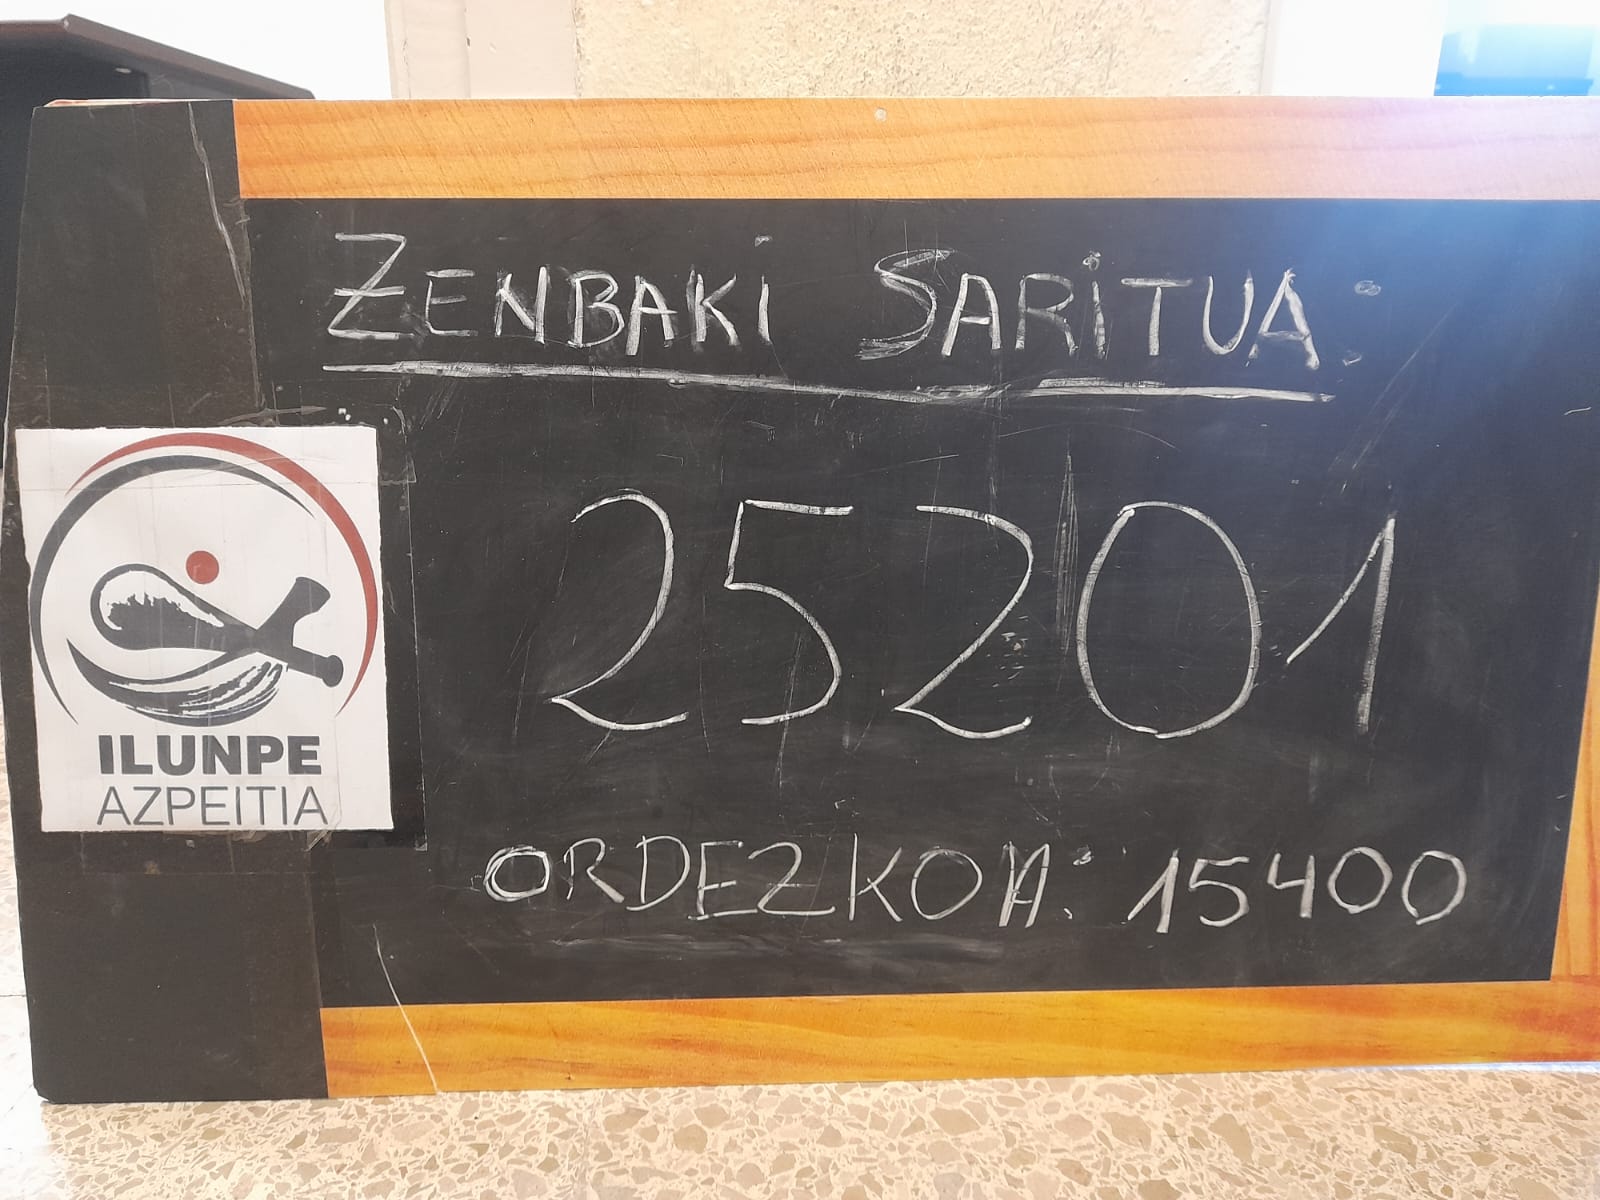 ZENBAKI SARITUA:
25201
ORDEZKOA: 15400
ILUNPE
AZPEITIA